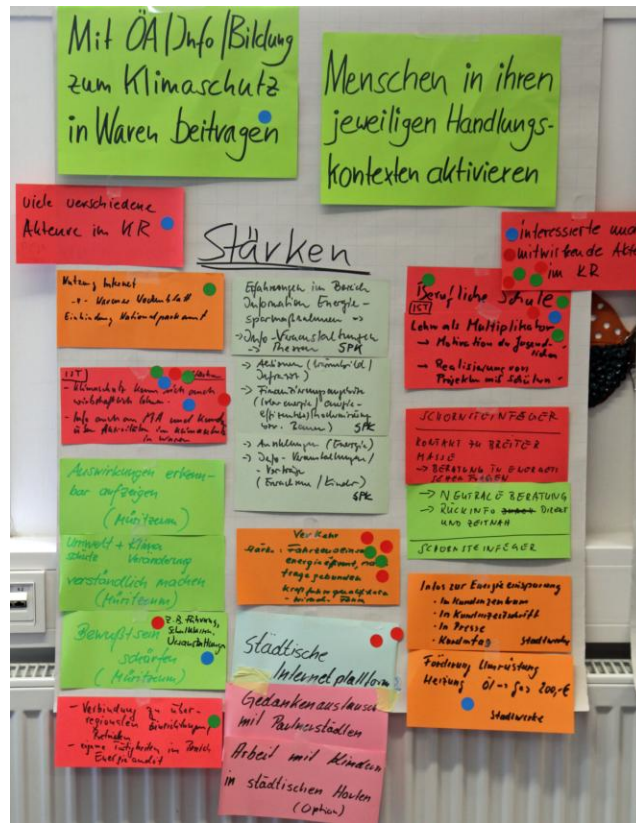 Mit ÖA/Info/Bildung
zum Klimaschutz
in Waren beitragen
Menschen in ihren
jeweiligen Handlungs-
kontexten aktivieren
viele verschiedene
Akteure im KR
interessierte und
mitwirkende
im KR
Stärken
Nutzung Internet
Einbindung Nationalparkamt
IST
- Klimaschutz kann sich auch
wirtschaftlich lohnen
- Info auch an MA und
über Aktivitäten im Klimaschutz
in Waren
Auswirkungen erkenn-
bar aufzeigen
(Müritzeum)
Umwelt + Klima
Veränderung
verständlich machen
(Müritzeum)
Bewußtsein
schärfen
(Müritzeum)
z.B. Führung,
Veranstaltungen
- Verbindung zu über-
regionalen Einrichtungen,
- eigene Tätigkeiten im Bereich
Energieaudit
Erfahrungen im Bereich
Information Energie-
sparmaßnahmen
→ Info-Veranstaltungen
→ Themen SPK
→ Aktionen (Wärmebild/
Infrarot)
→ Finanzierungsangebote
SPK
→ Ausstellungen (Energie)
→ Info-Veranstaltungen/
- Vorträge
(Erwachsene/Kinder)
SPK
Verkehr
Städtische
Internetplattform
Gedankenaustausch
mit Partnerstädten
Arbeit mit Kindern
in städtischen Horten
(Option)
Berufliche Schule
IST
Lehrer als Multiplikator
→ Motivation der Jugend-
lichen
→ Realisierung von
Projekten mit Schülern
SCHORNSTEINFEGER
KONTAKT ZU BREITER
MASSE
→ BERATUNG IN ENERGETI
SCHEN FRAGEN
→ NEUTRALE BERATUNG
→ RÜCKINFO DIREKT
UND ZEITNAH
SCHORNSTEINFEGER
Infos zur Energieeinsparung
- im Kundenzentrum
- in Kundenzeitschrift
- in Presse
- Kundentag Stadtwerke
Förderung Umrüstung
Heizung Öl → Gas 200,-€
Stadtwerke